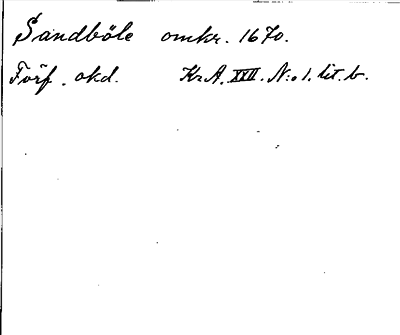 Sandböle omkr. 1670.
Förf. okd. Kr.A. XXII. N:o 1. lit. b.